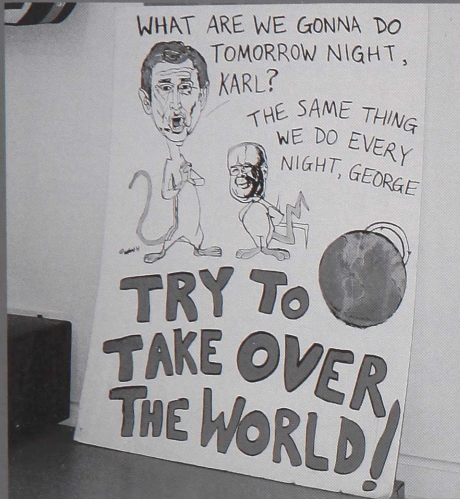 WHAT ARE WE GONNA DO
TOMORROW NIGHT,
KARL?
THE SAME THING
WE DO EVERY
NIGHT, GEORGE
TRY TO
TAKE OVER
THE WORLD!